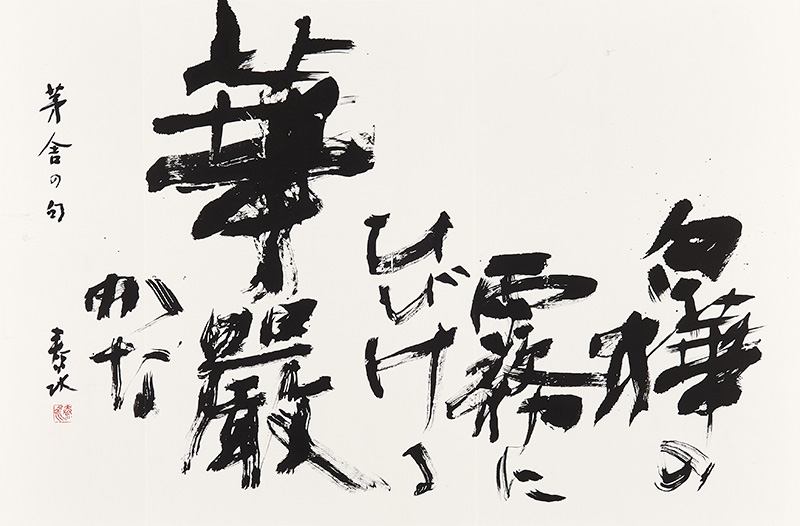 白樺の
霧に
ひびける
華嚴
かな
茅舎の句